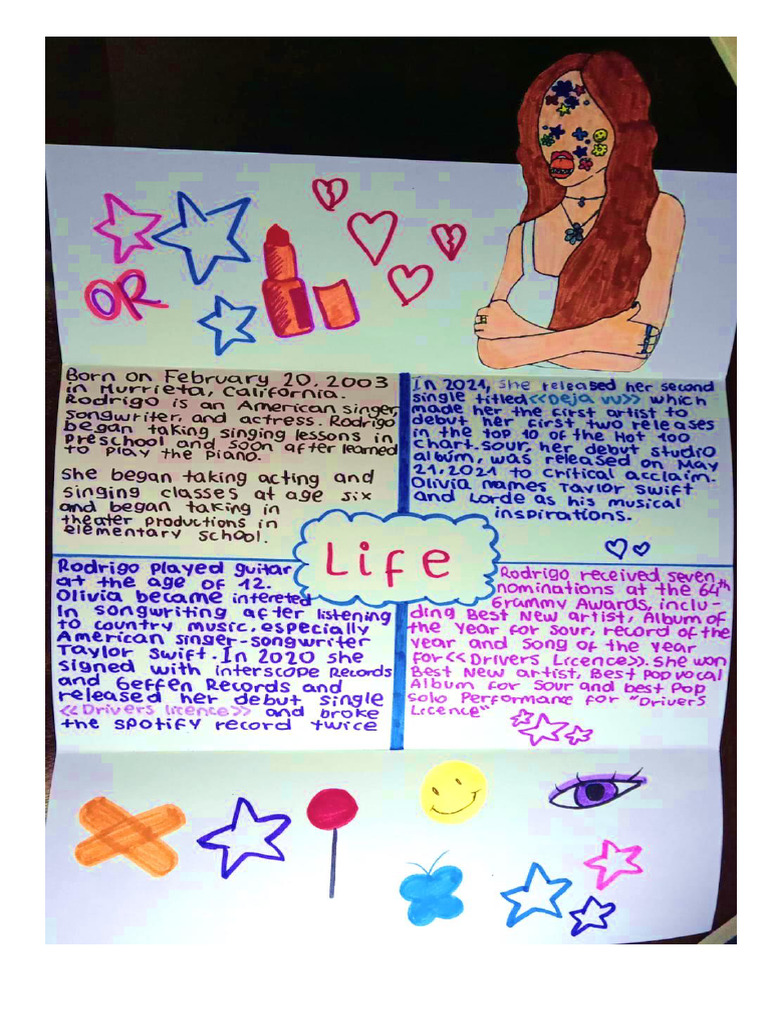 OR
Born on February 20, 2003
in Murrieta, California.
Rodrigo is an American singer,
songwriter, and actress. Rodrigo
began taking singing lessons in
preschool and soon after learned
to play the piano.
She began taking acting and
singing classes at age six
and began taking in
theater productions in
elementary school.
In 2021, she released her second
single titled <<Deja vu>> which
made her the first artist to
debut her first two releases
in the top 10 of the Hot 100
chart. Sour, her debut studio
album, was released on May
21,2021 to critical acclaim.
Olivia names Taylor Swift
and Lorde as his musical
inspirations.
Life
Rodrigo played guitar
at the age of 12.
Olivia became intereted
in songwriting after listening
to country music, especially
American singer-songwriter
Taylor Swift. In 2020 she
signed with interscope Records
and Geffen Records and
released her debut single
<<Drivers licence>> and broke
the spotify record twice
Rodrigo received seven
nominations at the 64th
Grammy Awards, inclu-
ding Best New artist, Album of
the Year for Sour, record of the
year and Song of the Year
for<<Drivers Licence>>. She won
Best New artist, Best pop vocal
Album for Sour and best Pop
solo Performance for "Drivers
Licence"